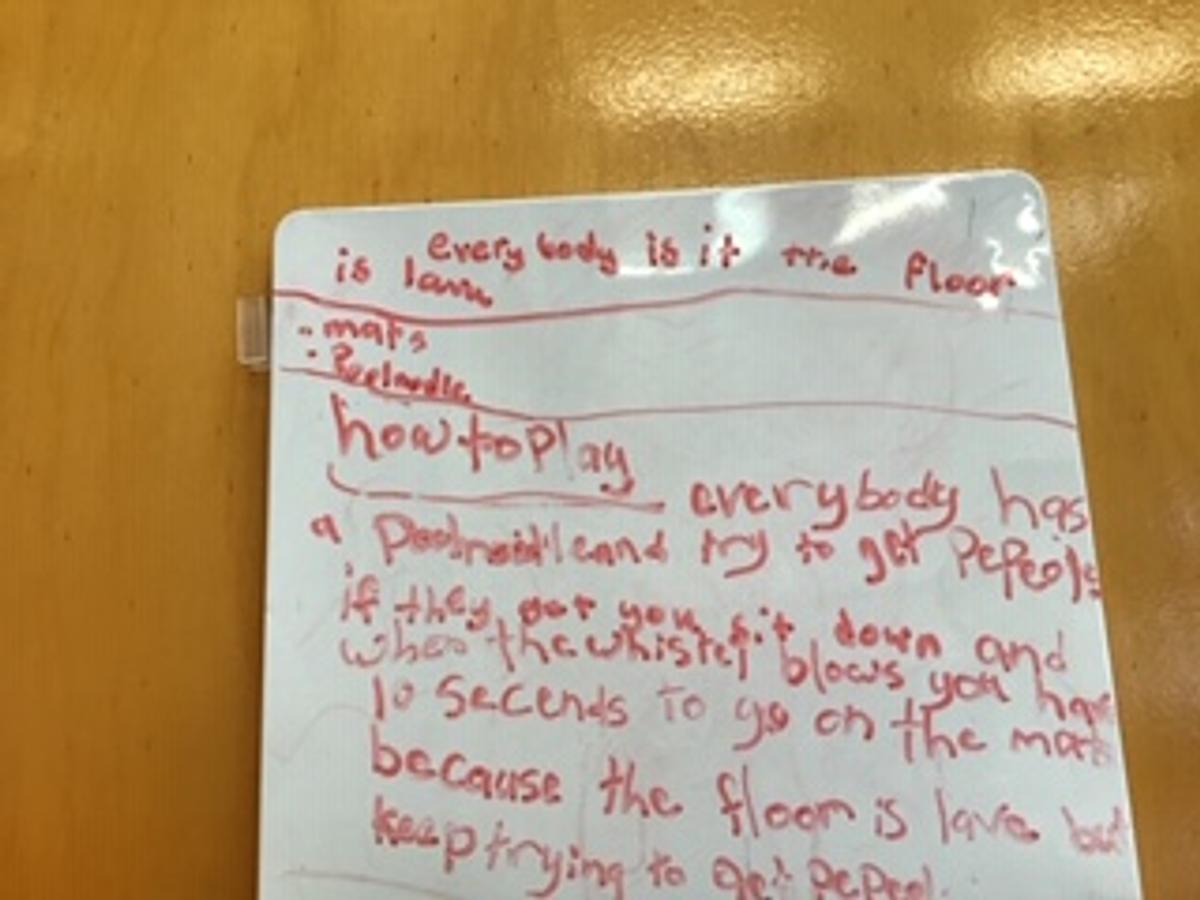 every body is it the floor
is lava
- mats
- Poolnoodle
how to play
everybody has
a Poolnoodle and try to get PePeols
if they got you sit down and
when the whistel blows you have
10 Secends to go on the mats
because the floor is lava but
keep trying to get PePeol.